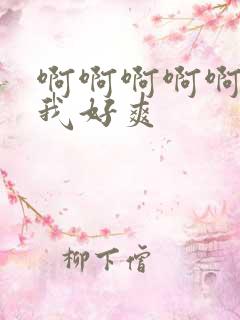 啊啊啊啊啊
我好爽
柳下僧